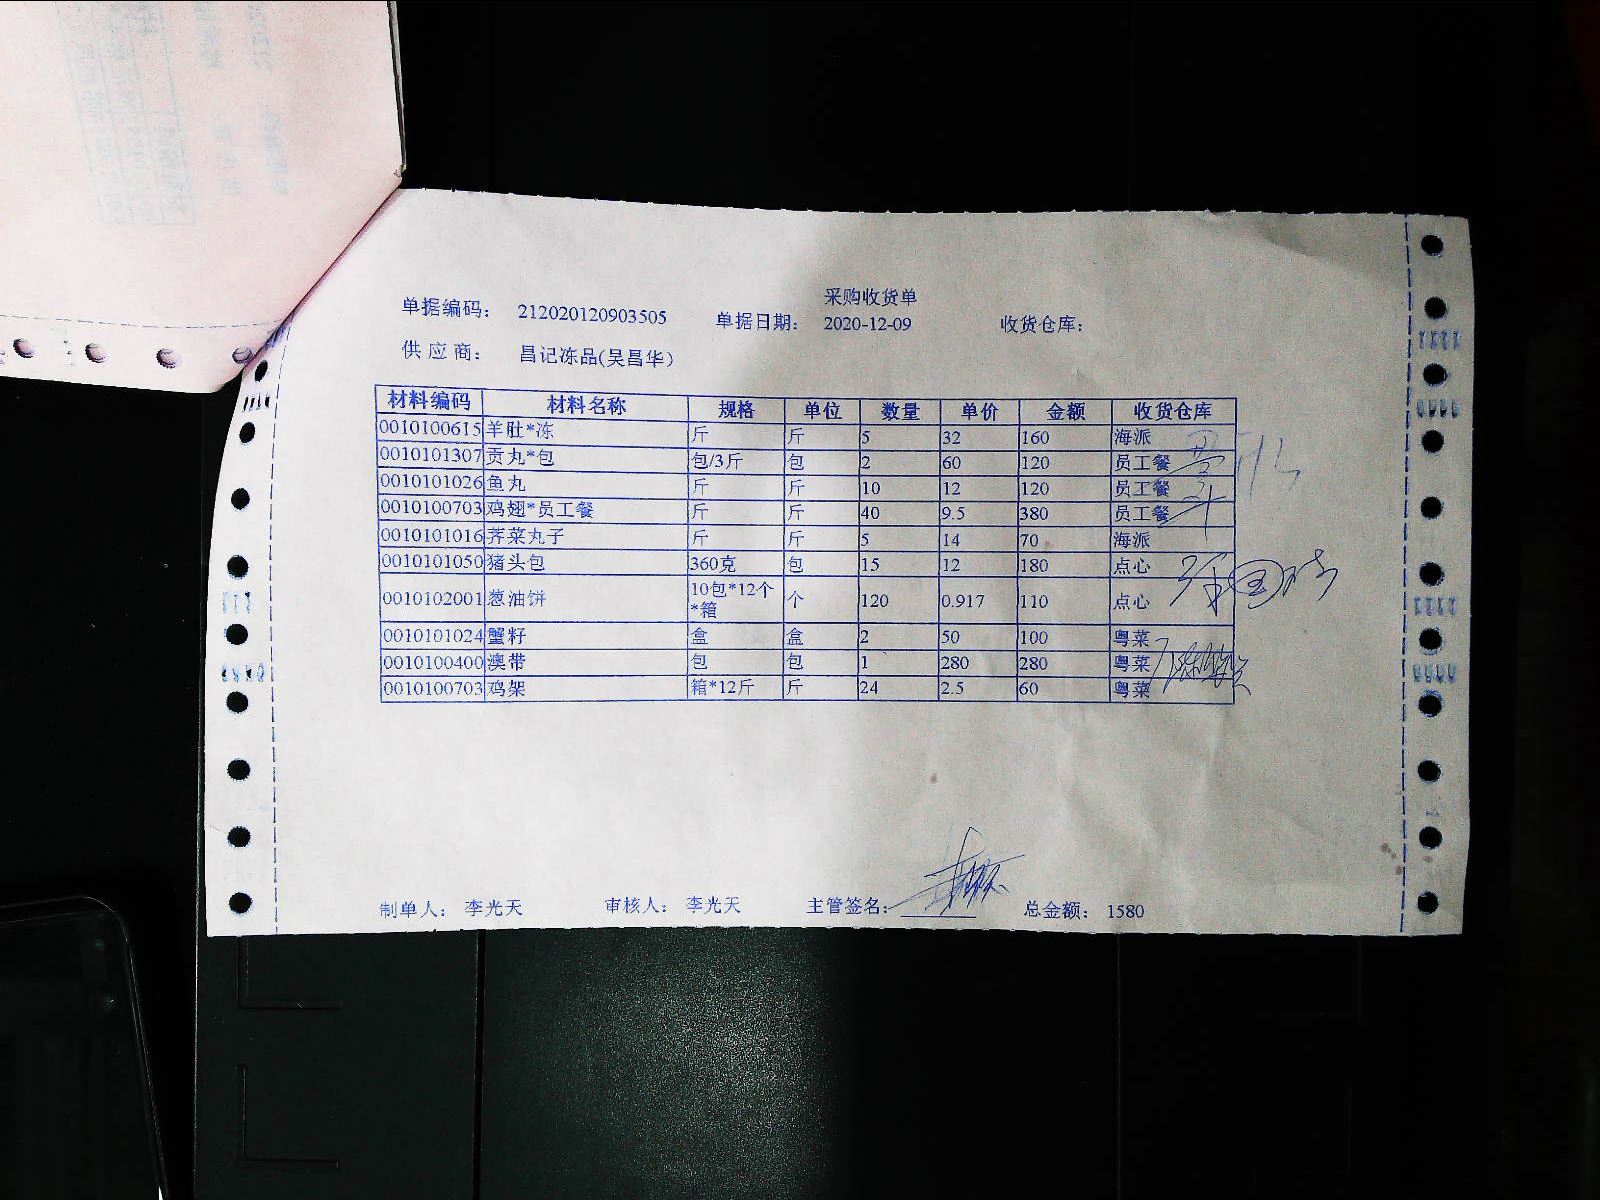 采购收货单
单据编码： 212020120903505 单据日期： 2020-12-09 收货仓库：
供 应 商： 昌记冻品(吴昌华)
材料编码 材料名称 规格 单位 数量 单价 金额 收货仓库
0010100615 羊肚*冻 斤 斤 5 32 160 海派
0010101307 贡丸*包 包/3斤 包 2 60 120 员工餐
0010101026 鱼丸 斤 斤 10 12 120 员工餐
0010100703 鸡翅*员工餐 斤 斤 40 9.5 380 员工餐
0010101016 荠菜丸子 斤 斤 5 14 70 海派
0010101050 猪头包 360克 包 15 12 180 点心
0010102001 葱油饼 10包*12个*箱 个 120 0.917 110 点心
0010101024 蟹籽 盒 盒 2 50 100 粤菜
0010100400 澳带 包 包 1 280 280 粤菜
0010100703 鸡架 箱*12斤 斤 24 2.5 60 粤菜
制单人： 李光天 审核人： 李光天 主管签名： 总金额： 1580